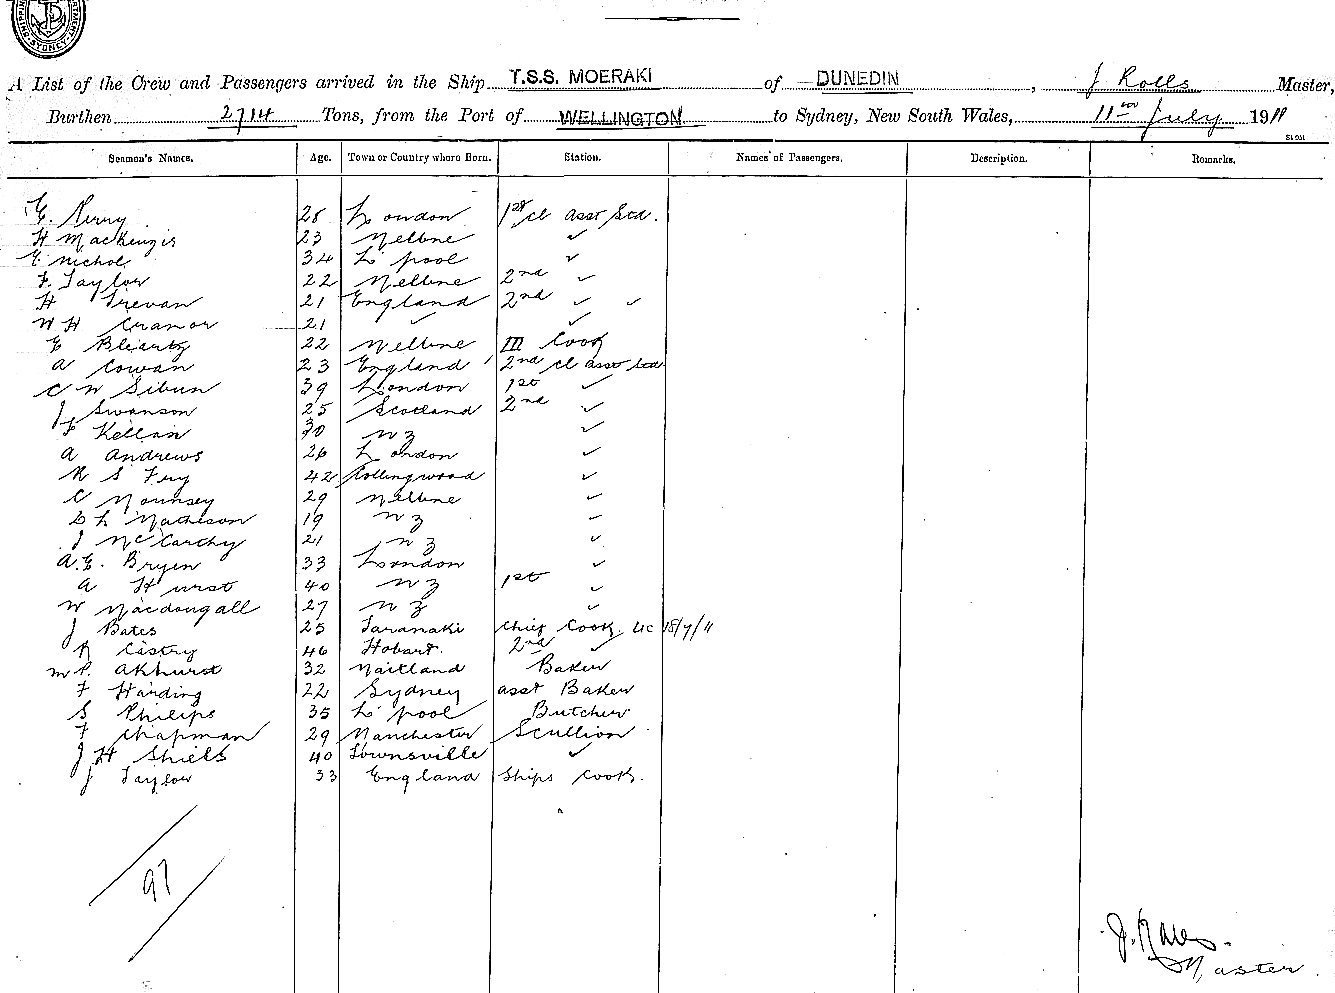 SYDNEY
A List of the Crew and Passengers arrived in the Ship T.S.S. MOERAKI of DUNEDIN, J Rolls Master,
Burthen 2714 Tons, from the Port of WELLINGTON to Sydney, New South Wales, 11th July 1911
Seamen's Names. Age. Town or Country where Born. Station. Names of Passengers. Description. Remarks.
E. Perry 28 London 1st cl asst Std.
H Mackenzie 23 Melbne ✓
E Nichol 34 L'pool ✓
F. Taylor 22 Melbne 2nd ✓
H Trevan 21 England 2nd ✓ ✓
W H Cranor 21 ✓ ✓
E 22 Melbne III Cook
A Cowan 23 England 2nd cl asst Std
C W Sibun 39 London 1st ✓
J Swanson 25 Scotland 2nd ✓
F Kellan 30 N Z ✓
A Andrews 26 London ✓
R S Fry 42 Collingwood ✓
C Mounsey 29 Melbne ✓
D L Matheson 19 N Z ✓
J McCarthy 21 N Z ✓
A. E. Bryen 33 London ✓
A Hurst 40 N Z 1st ✓
W Macdougall 27 N Z ✓
J Bates 25 Taranaki Chief Cook. 18/7/11
R 46 Hobart. 2nd ✓
M P. Akhurst 32 Maitland Baker
F Harding 22 Sydney asst Baker
S Philips 35 L'pool Butcher
F Chapman 29 Manchester Scullion
J H Shiels 40 Townsville ✓
J Taylor 33 England Ships Cook.
97
J. Rolls
Master